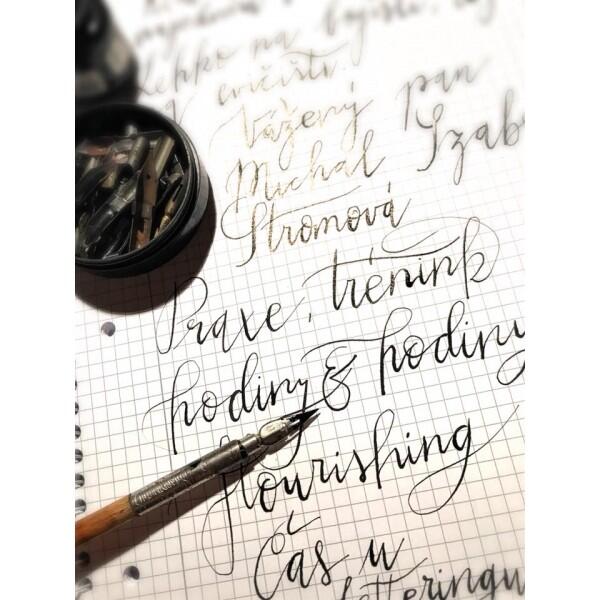 Lehko na
V cvičišti
Vážený pan
Michal Szab
Stromová
Praxe, trénink
hodiny & hodiny
flourishing
Čas u
letteringu